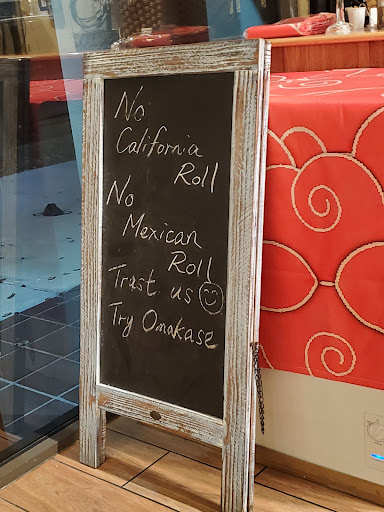 No
California
Roll
No
Mexican
Roll
Trust us
Try Omakase